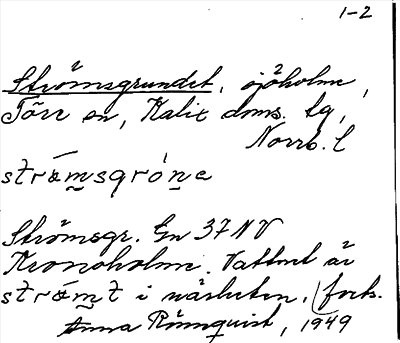 1-2
Strömsgrundet, sjöholme,
Töre sn, Kalix doms. tg,
Norrb. l
strœmsgróne
Strömsgr. En 37 NV
Kronoholme. Vattnet är
strœmt i närheten. (forts.
Anna Rönnquist, 1949